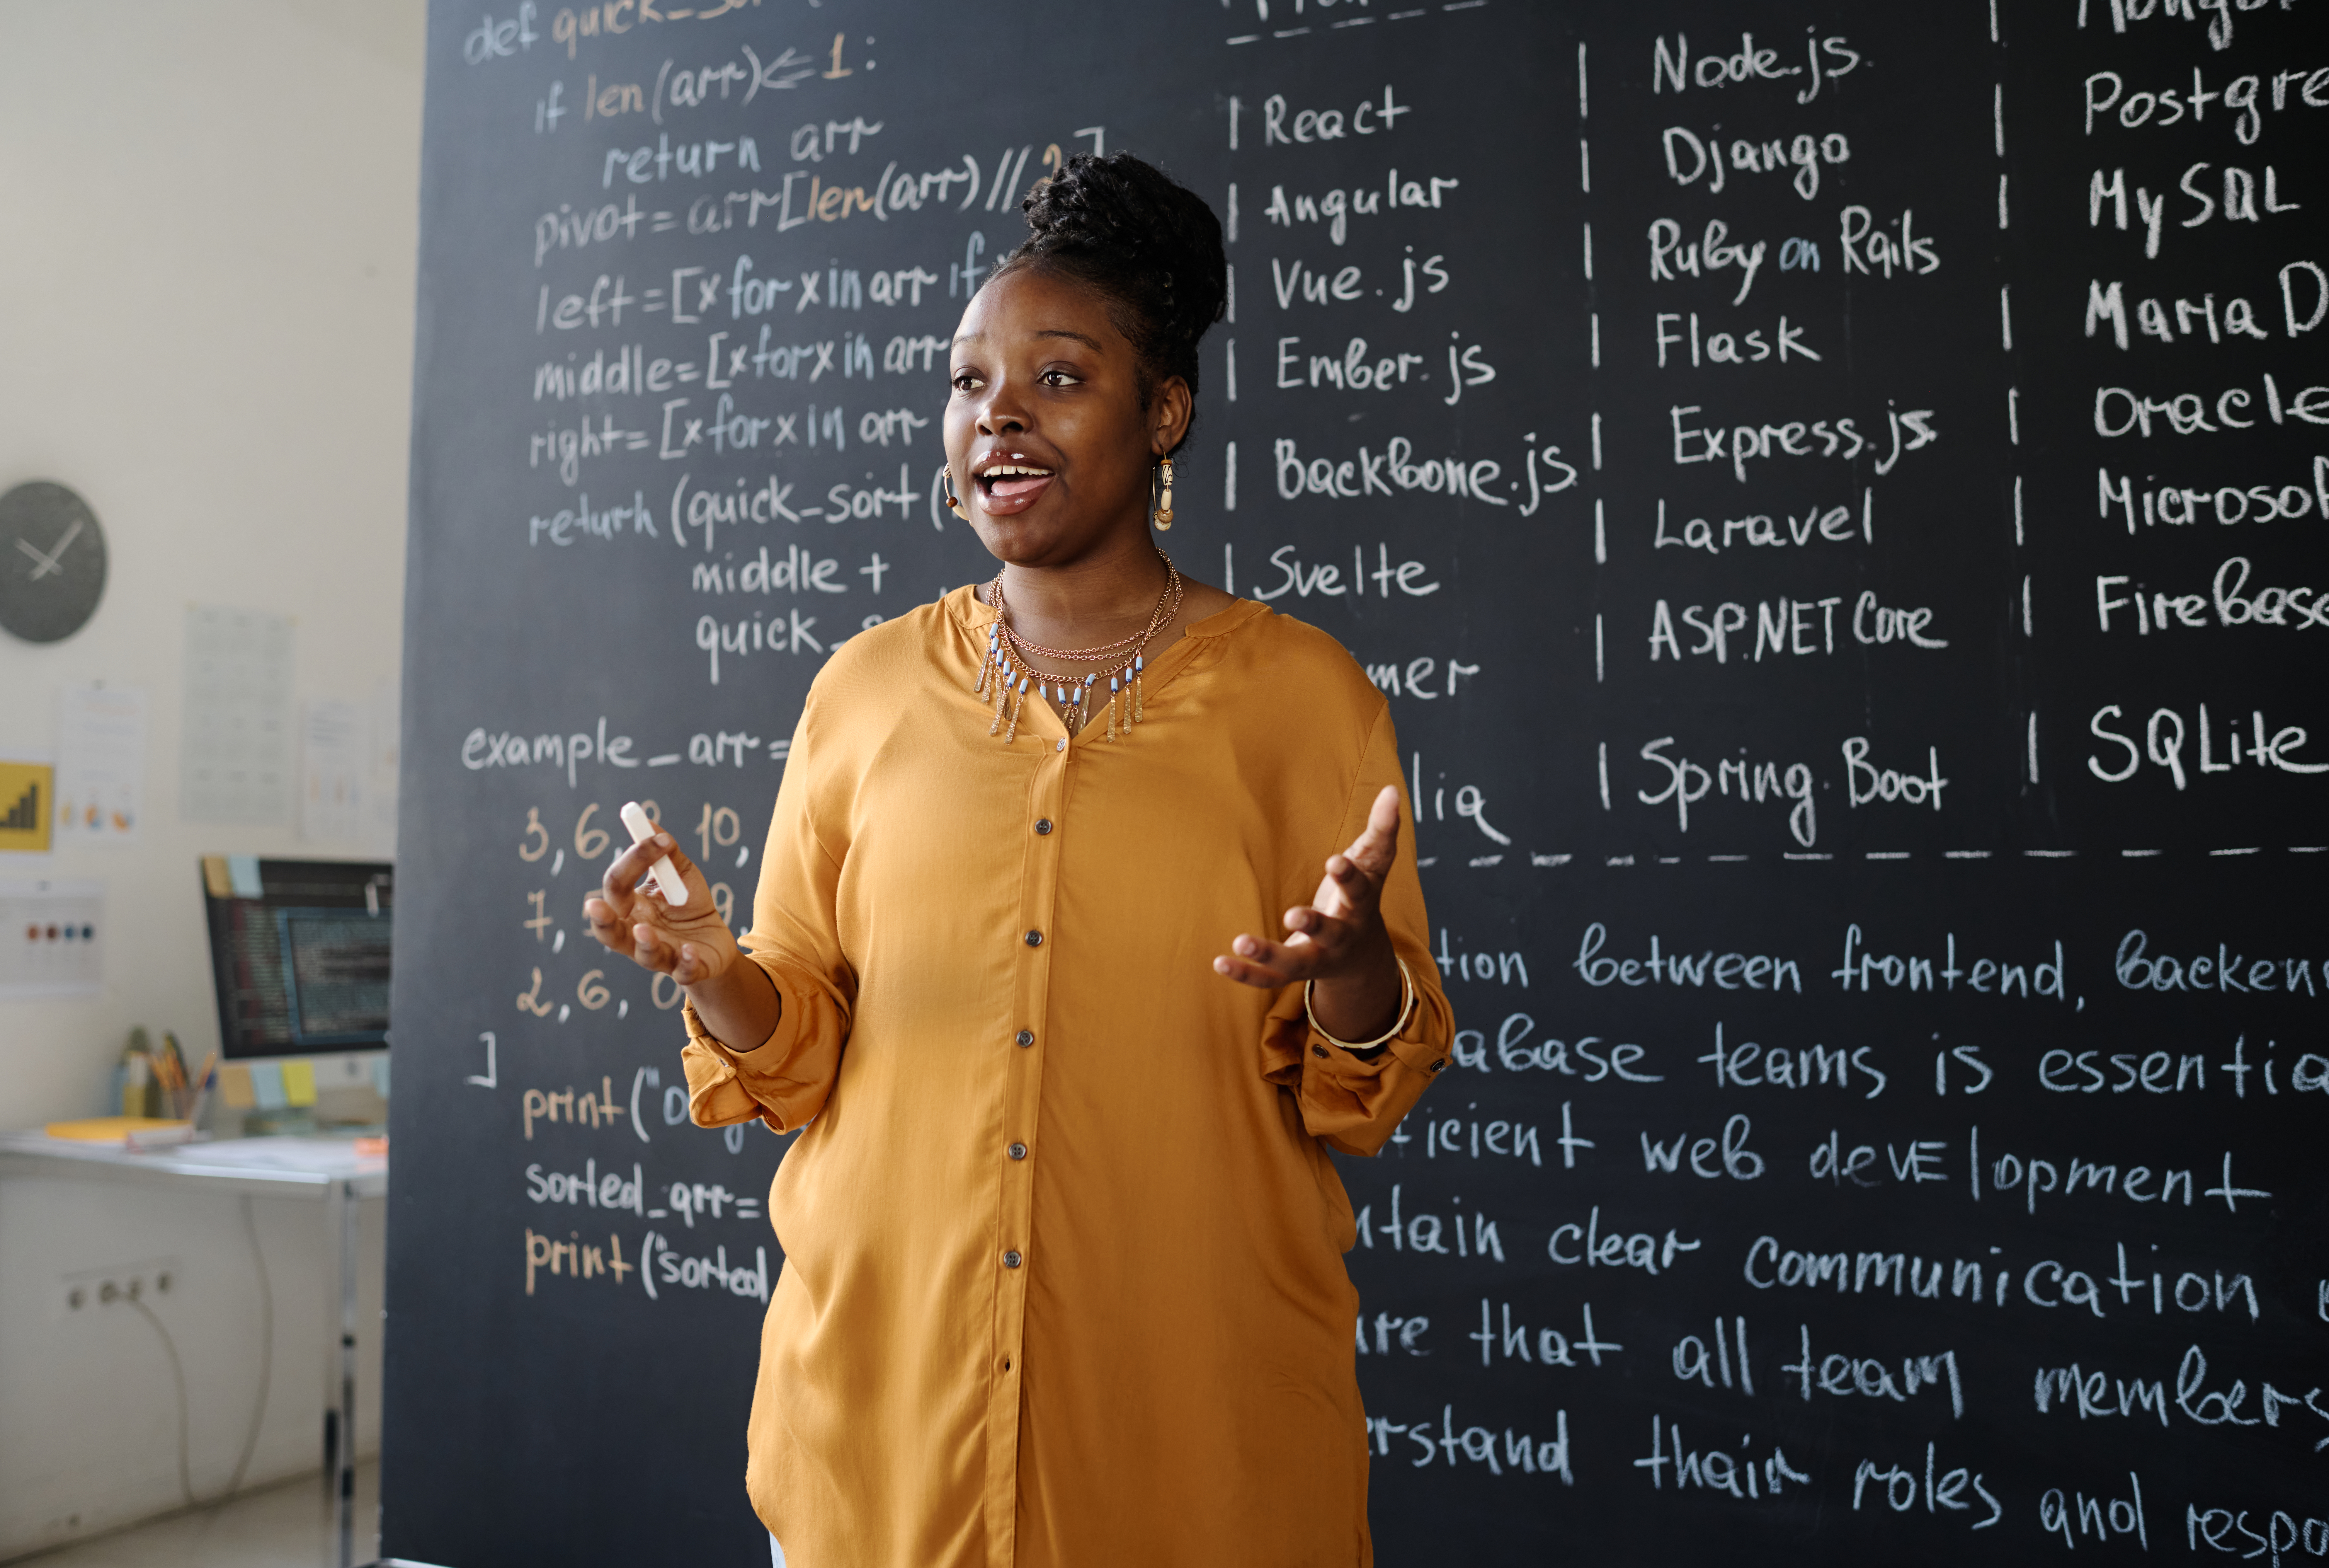 def quick_
if len(arr)<=1:
return arr
pivot=arr[len(arr)//2]
left=[x for x in arr if
middle=[x for x in arr
right=[x for x in arr
return (quick_sort(
middle +
quick_
example_arr=
3, 6, 8, 10,
7,
2, 6, 0
]
print("
sorted_arr=
print("sorted
React
Angular
Vue.js
Ember.js
Backbone.js
Svelte
mer
lia
Node.js
Django
Ruby on Rails
Flask
Express.js
Laravel
ASP.NET Core
Spring Boot
Postgre
MySQL
Maria D
Oracle
Microsof
Firebase
SQLite
tion between frontend, backen
abase teams is essentia
icient web devElopment
ntain clear communication
ure that all team members
erstand thair roles and respo